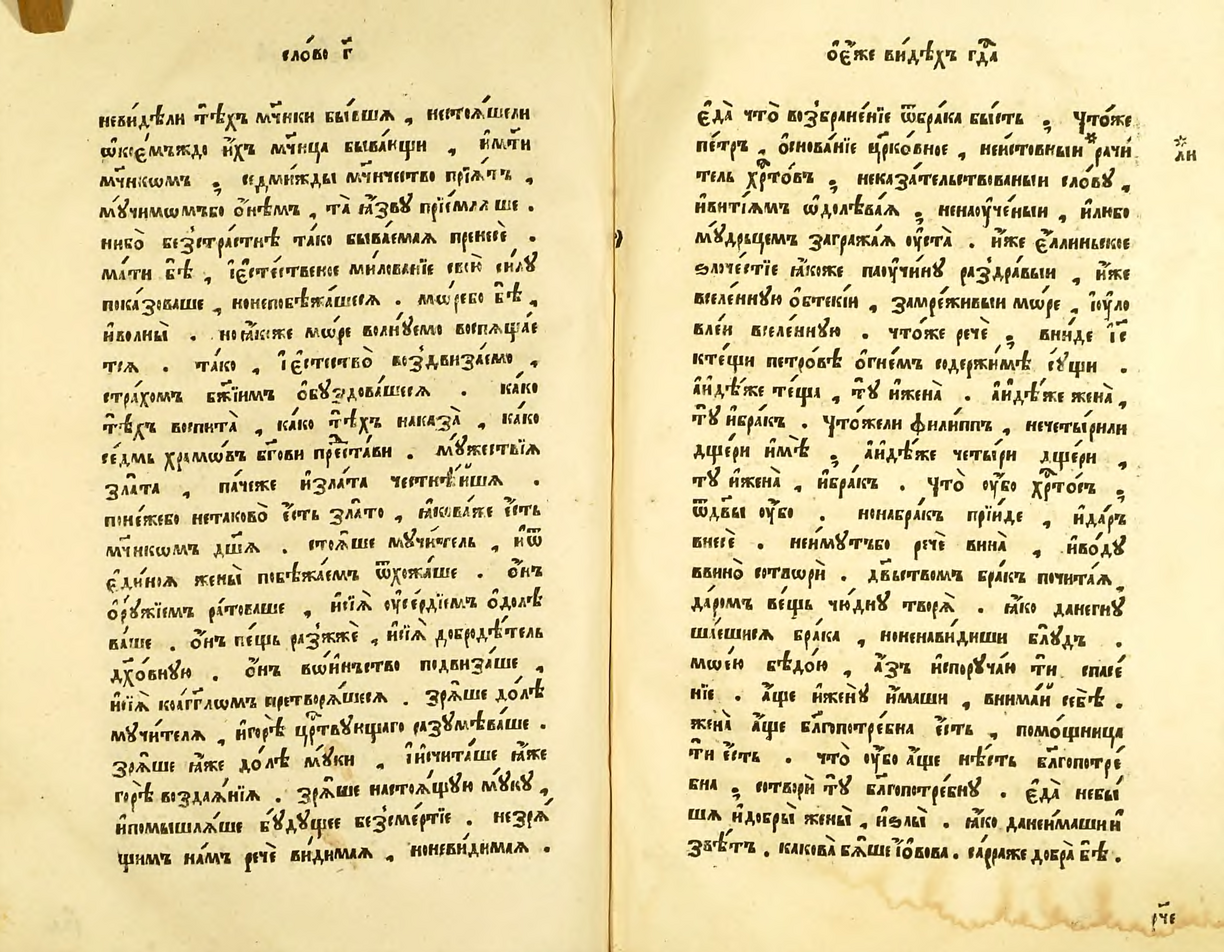 сло́во г҃
неви́дѣли тѣ́хъ мч҃ики бы́вшѧ , нестоѧ́шели
ѡ҆коє́мъждо и҆́хъ мч҃ица быва́ющи , и҆ м҃ти
мч҃икѡмъ ; седми́жды мч҃ичество прїѧ́тъ ,
мꙋ́чимѡмъбо ѻ҆нѣ́мъ , та̀ ꙗ҆́звꙋ прїе́млѧше .
нибо̀ безстра́стнѣ та́ко быва́емаѧ пренесѐ .
ма́ти бѣ̀ , і҆є҆сте́ственое ми́лованїе свою̀ си́лꙋ
пока́зоваше , нонепобѣжа́шесѧ . мѡ́ребо бѣ̀ ,
и҆во́лны̀ . ноꙗ҆́коже мѡ́ре волнꙋ́емо воспѧща́е
тсѧ . та́ко , і҆є҆стество̀ воздвиза́емо ,
стра́хомъ бж҃їимъ ѡ҆бꙋздова́шеесѧ . ка́ко
тѣ́хъ воспита̀ , ка́ко тѣ́хъ наказа̀ , ка́ко
се́дмь хра́мѡвъ бг҃ови преста́ви . мꙋ́жествїѧ
зла́та , па́чеже и҆зла́та честнѣ́йшѧ .
поне́жебо нетаково̀ є҆́сть зла́то , ꙗ҆кова́же є҆́сть
мч҃икѡмъ дш҃ѧ . стоѧ́ше мꙋчи́тель , и҆ѿ
є҆ди́ноѧ жены̀ побѣжа́емъ ѿхожа́ше . ѻ҆́нъ
ѻ҆рꙋ́жїемъ ра́товаше , и҆сїѧ̀ ᲂу҆се́рдїемъ ѻ҆долѣ
ва́ше . ѻ҆́нъ пе́щь разжжѐ , и҆сїѧ̀ добродѣ́тель
дх҃о́внꙋю . ѻ҆́нъ вѡ́йньство подвиза́ше ,
и҆сїѧ̀ коа́гг҃лѡмъ претворѧ́шесѧ . зрѧ́ше до́лѣ
мꙋчи́телѧ , и҆горѣ̀ црⷭ҇твꙋющаго разꙋмѣва́ше .
зрѧ́ше ꙗ҆́же до́лѣ мꙋ́ки , і҆исчита́ше ꙗ҆́же
горѣ̀ воздаѧ́нїѧ . зрѧ́ше настоѧ́щꙋю мꙋ́кꙋ ,
и҆помышлѧ́ше бꙋ́дꙋщее безсме́ртїе . незрѧ́
щимъ на́мъ речѐ ви́димаѧ , ноневи́димаѧ .
ѻ҆є́же ви́дѣхъ гдⷭ҇а
є҆да̀ что̀ возбране́нїе ѿбра́ка бы́сть ; что́же
пе́тръ , ѻ҆снова́нїе црк҃о́вное , неи́стовныи *рачи́
тель хрⷭ҇то́въ ; неказа́тельствованыи сло́вꙋ ,
и҆вити́ѧмъ ѡ҆долѣва́ѧ ; ненаᲂу҆че́ныи , и҆ли́бо
мꙋ́дрьцемъ загражаѧ ᲂу҆ста̀ . и҆́же є҆́ллиньское
ѕлоче́стїе ꙗ҆́коже паᲂу҆чи́нꙋ раздра́выи , и҆́же
вселе́ннꙋю ѻ҆бтекі́и , замре́живыи мѡ́ре , і҆ᲂу҆ло
вле́и вселе́ннꙋю . что́же речѐ ; вни́де і҆с҃
кте́щи петро́вѣ ѻ҆гне́мъ содержи́мѣ сꙋ́щи .
а҆идѣ́же те́ща , тꙋ̀ и҆жена̀ . а҆идѣ́же жена̀ ,
тꙋ̀ и҆бра́къ . что́жели фили́ппъ , нечеты́рили
дще́ри и҆мѣ̀ ; а҆идѣ́же четы́ри дще́ри ,
тꙋ̀ и҆жена̀ , и҆бра́къ . что̀ ᲂу҆́бо хрⷭ҇то́съ ;
ѿдв҃ы ᲂу҆́бо . нонабра́къ прїи́де , и҆да́ръ
внесѐ . неи́мꙋтъбо речѐ вина̀ , и҆во́дꙋ
ввино̀ сотворѝ . дв҃ьствомъ бра́къ почита́ѧ ,
да́ромъ ве́щь чю́днꙋ творѧ̀ . ꙗ҆́ко данегнꙋ
ша́ешисѧ бра́ка , ноненави́диши блꙋ́дъ .
мѡе́ю бѣдо́ю , а҆́зъ и҆спорꙋча́ю тѝ спасе́
нїе . а҆́ще и҆женꙋ̀ и҆́маши , внима́й себѣ̀ .
жена̀ а҆́ще бл҃гопотре́бна є҆́сть , помо́щница
тѝ є҆́сть . что̀ ᲂу҆́бо а҆́ще нѣ́сть бл҃гопотре́
бна ; сотворѝ тꙋ̀ бл҃гопотре́бнꙋ . є҆да̀ небы́
шѧ и҆добры̀ жены̀ , и҆ѕлы̀ . ꙗ҆́ко данеи́машии
звѣ́тъ . какова̀ бѧ́ше і҆ѡ́вова . са́рраже добра̀ бѣ̀ .
* ли
рч҃е